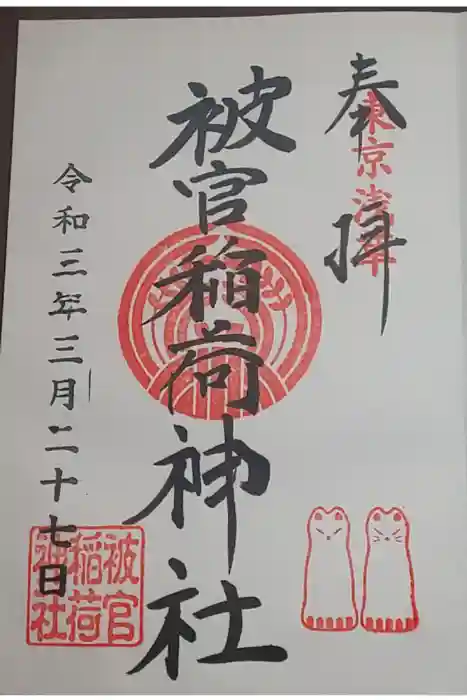 奉拝
東京浅草
被官稲荷神社
令和三年三月二十七日
被官
稲荷
神社